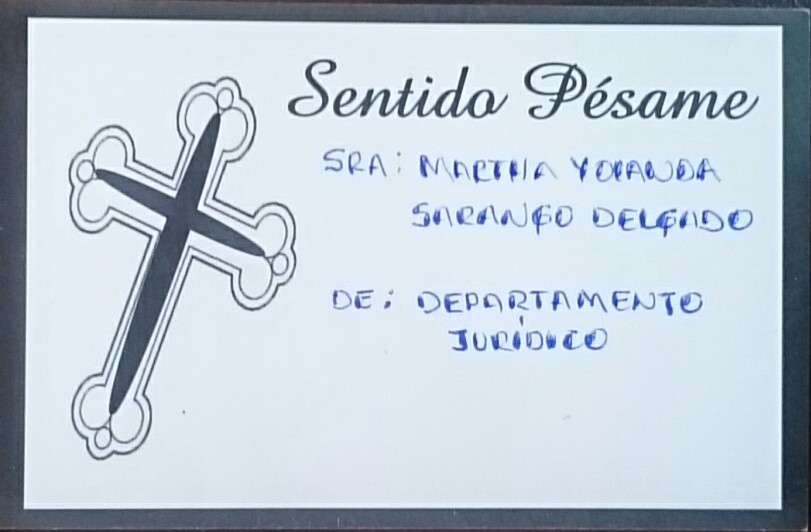 Sentido Pésame
SRA: MARTHA YOLANDA
SARANGO DELGADO
DE: DEPARTAMENTO
JURÍDICO